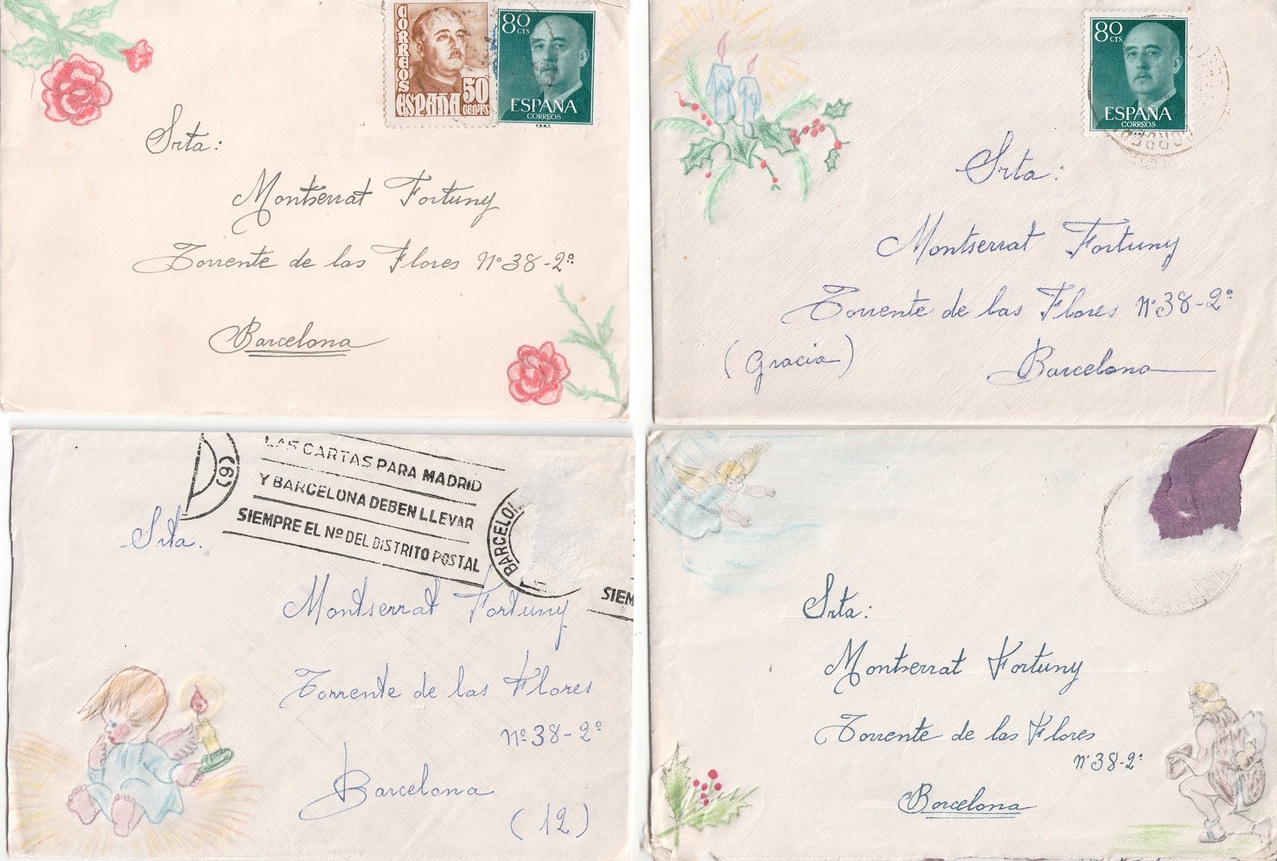 CORREOS
ESPAÑA
50
CENTS
80 CTS
ESPAÑA
CORREOS
F.N.M.T.
Srta:
Montserrat Fortuny
Torrente de las Flores Nº 38-2º
Barcelona
80 CTS
ESPAÑA
CORREOS
Srta:
Montserrat Fortuny
Torrente de las Flores Nº 38-2º
(Gracia)
Barcelona
(6)
LAS CARTAS PARA MADRID
Y BARCELONA DEBEN LLEVAR
SIEMPRE EL Nº DEL DISTRITO POSTAL
BARCELON
SIEM
Srta.
Montserrat Fortuny
Torrente de las Flores
Nº 38-2º
Barcelona
(12)
Srta:
Montserrat Fortuny
Torrente de las Flores
Nº 38-2º
Barcelona